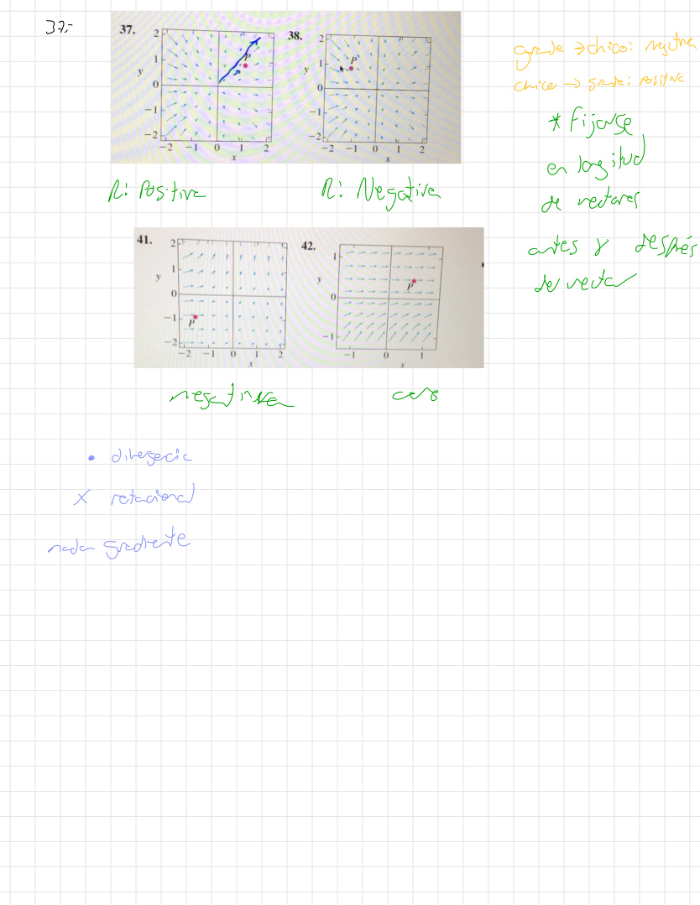 37.-
37.
38.
2
1
y
0
-1
-2
-2 -1 0 1 2
x
P
2
1
y
0
-1
-2
-2 -1 0 1 2
x
P
R: Positiva
R: Negativa
grande → chico: negativa
chico → grande: positiva
* Fijarse
en longitud
de vectores
antes y después
del vector
41.
42.
2
1
y
0
-1
-2
-2 -1 0 1 2
x
P
1
y
0
-1
-1 0 1
x
P
negativa
cero
• divergencia
X rotacional
nada gradiente